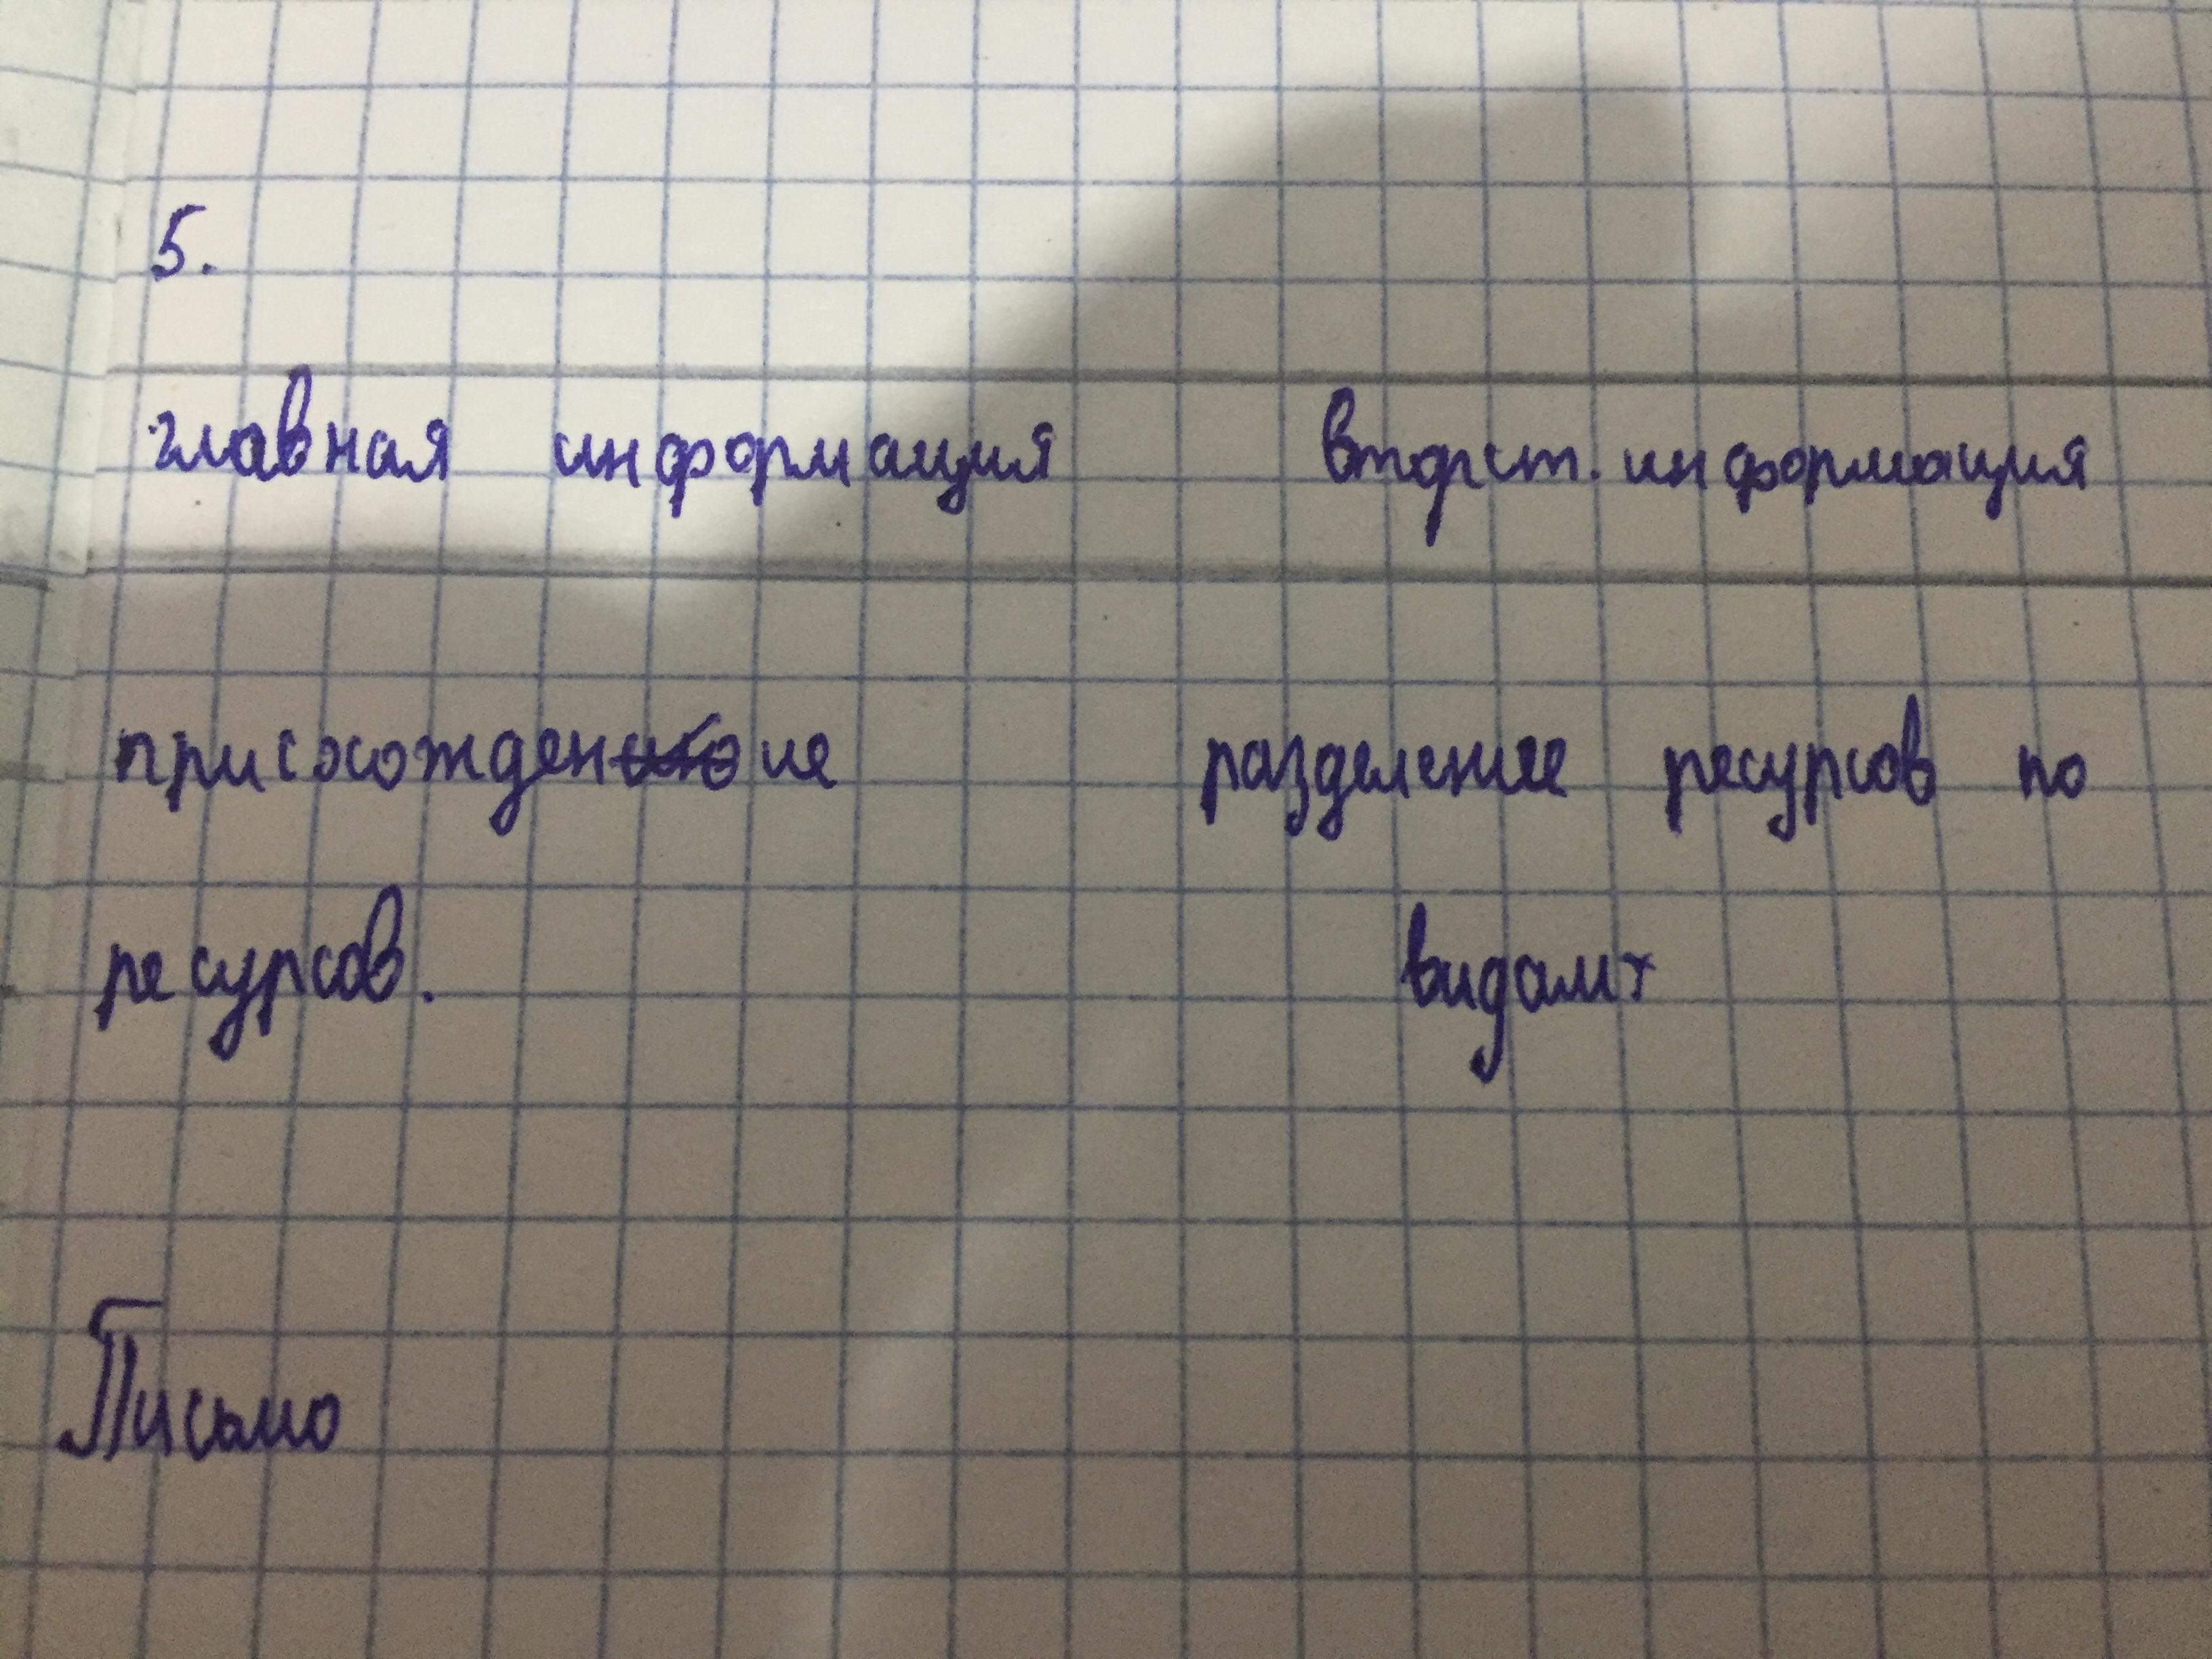 5.
главная информация вторст. информация
присхождение разделение ресурсов по
ресурсов. видам
Письмо